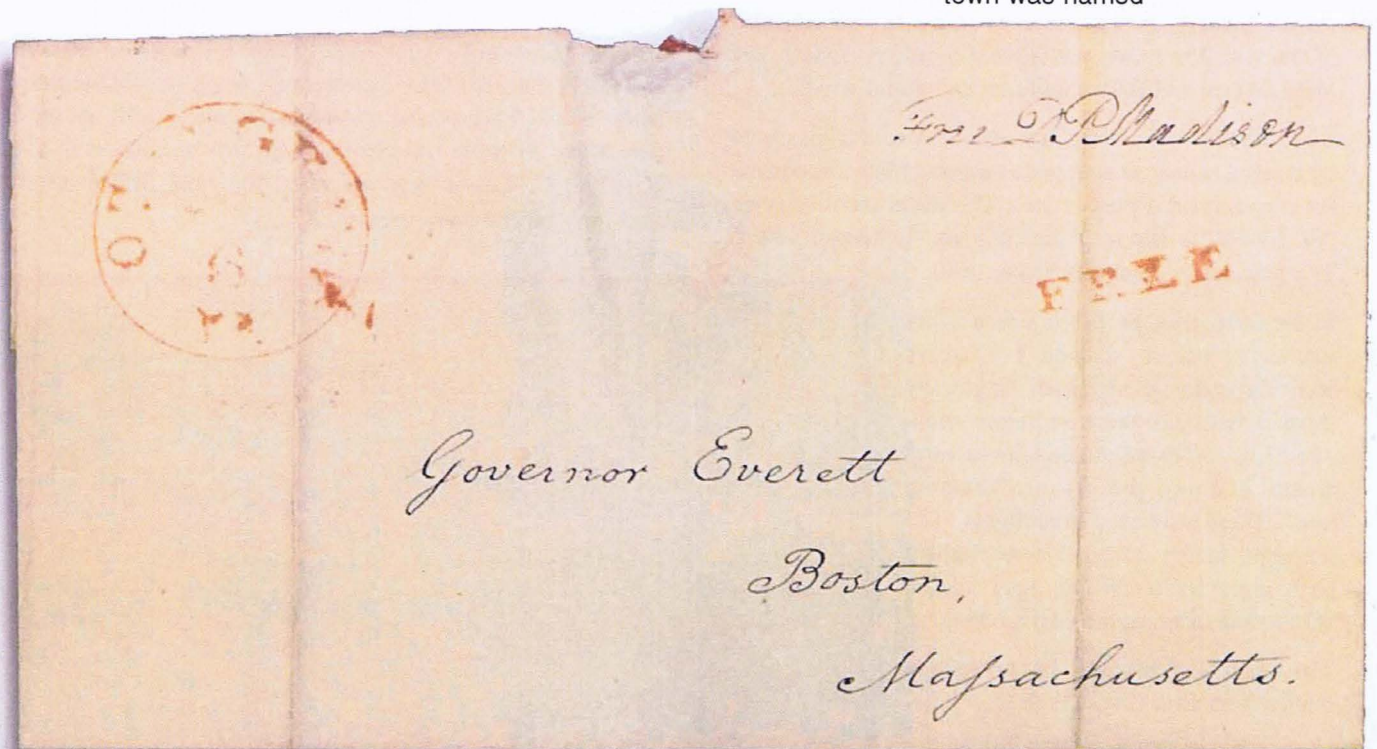 town was named
Free DPMadison
8
FREE
Governor Everett
Boston,
Maſsachusetts.